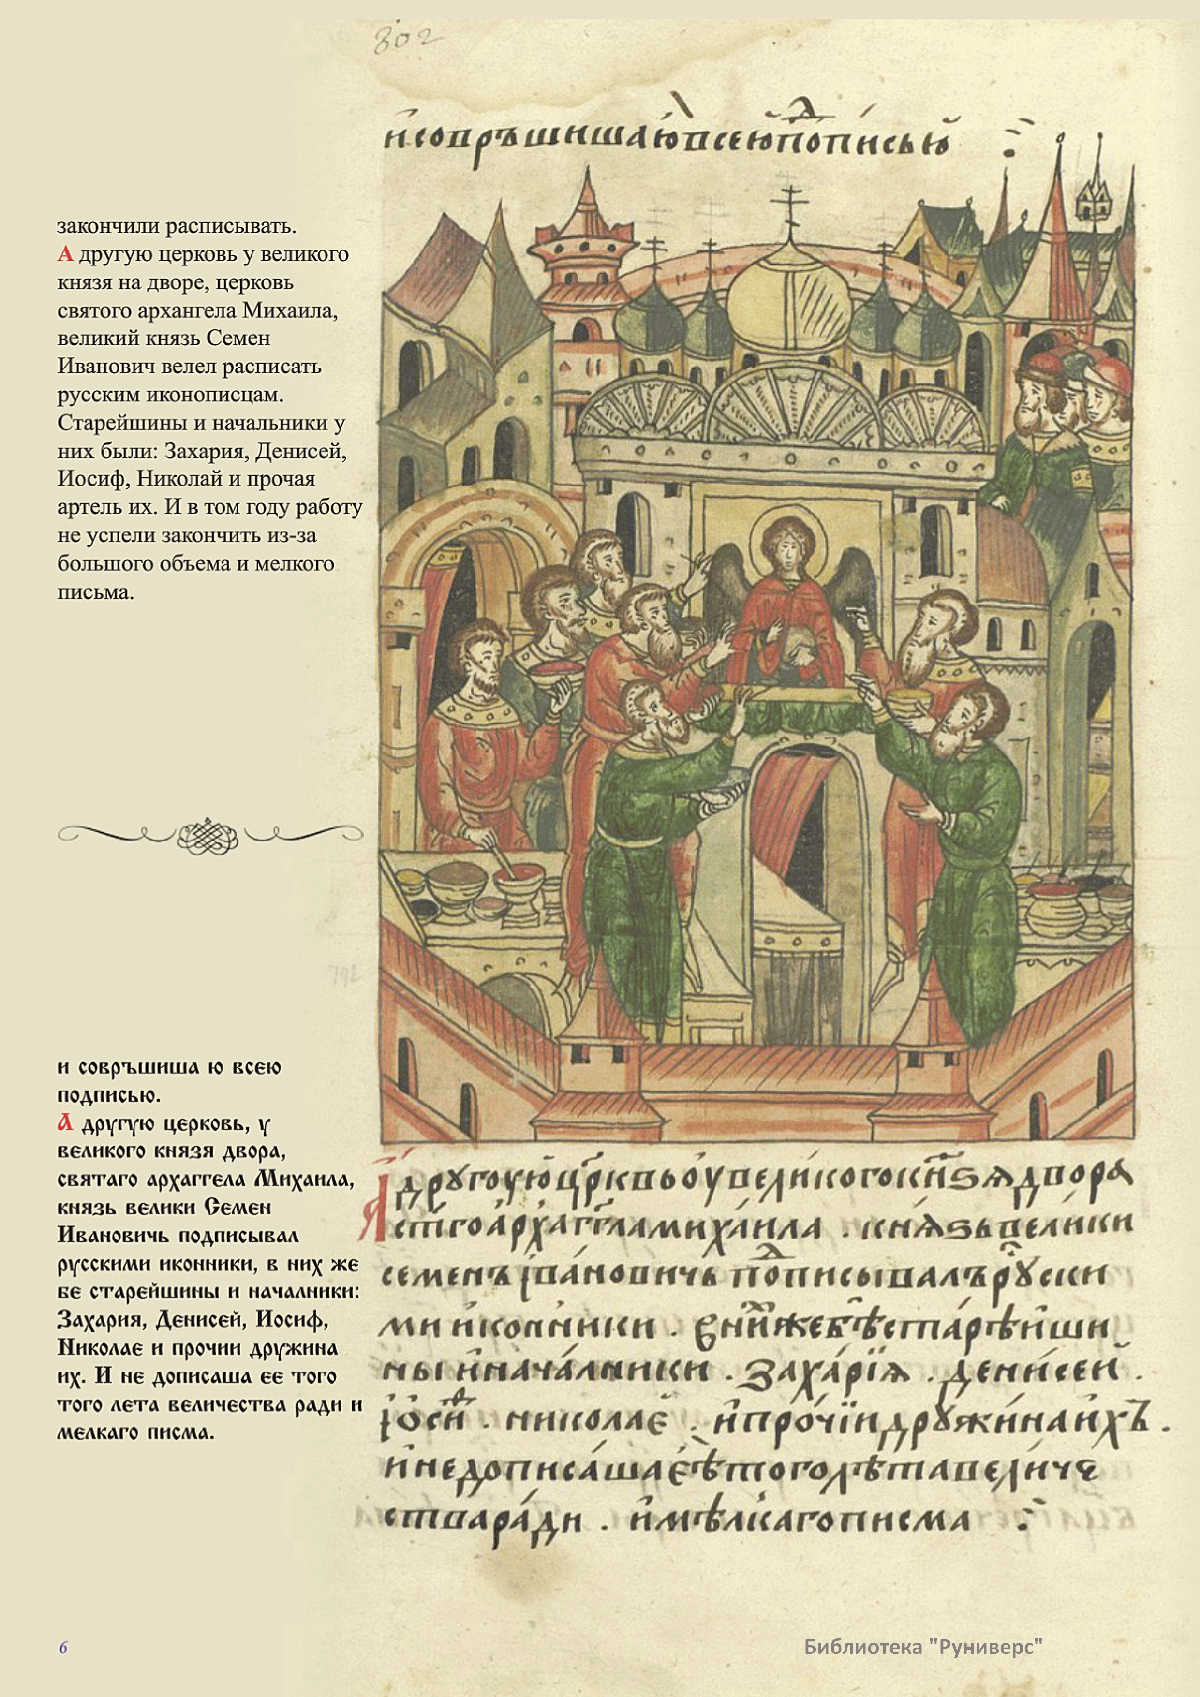 802
и҆совръшишаю҆всею҆пѻⷣписью҆
закончили расписывать.
А другую церковь у великого
князя на дворе, церковь
святого архангела Михаила,
великий князь Семен
Иванович велел расписать
русским иконописцам.
Старейшины и начальники у
них были: Захария, Денисей,
Иосиф, Николай и прочая
артель их. И в том году работу
не успели закончить из-за
большого объема и мелкого
письма.
792
и совръшиша ю всею
подписью.
А другую церковь, у
великого князя двора,
святаго архаггела Михаила,
князь велики Семен
Ивановичь подписывал
русскими иконники, в них же
бе старейшины и началники:
Захария, Денисей, Иосиф,
Николае и прочии дружина
их. И не дописаша ее того
того лета величества ради и
мелкаго писма.
А҆другоую҆цр҃квьоу҆великогокн҃ѕядвора
ст҃гоа҆рха́гг҃ламиха́ила . кня́ѕьвелики
семенъ і҆ва́новичь поⷣписывалърꙋски
ми и҆конники . внⷯи́жебѣ̀старѣ́иши
ны и҆нача́лники . Заха́рїя . дени́сей .
і҆о́сиⷴ . николае . и҆про́чїи дружи́наи҆хъ .
и҆недописа́шаеѣ̀тоголѣ́тавели́че
стваради . и҆мѣ́лкагописма
6
Библиотека "Руниверс"